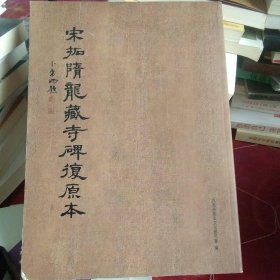 宋拓隋龍藏寺碑復原本